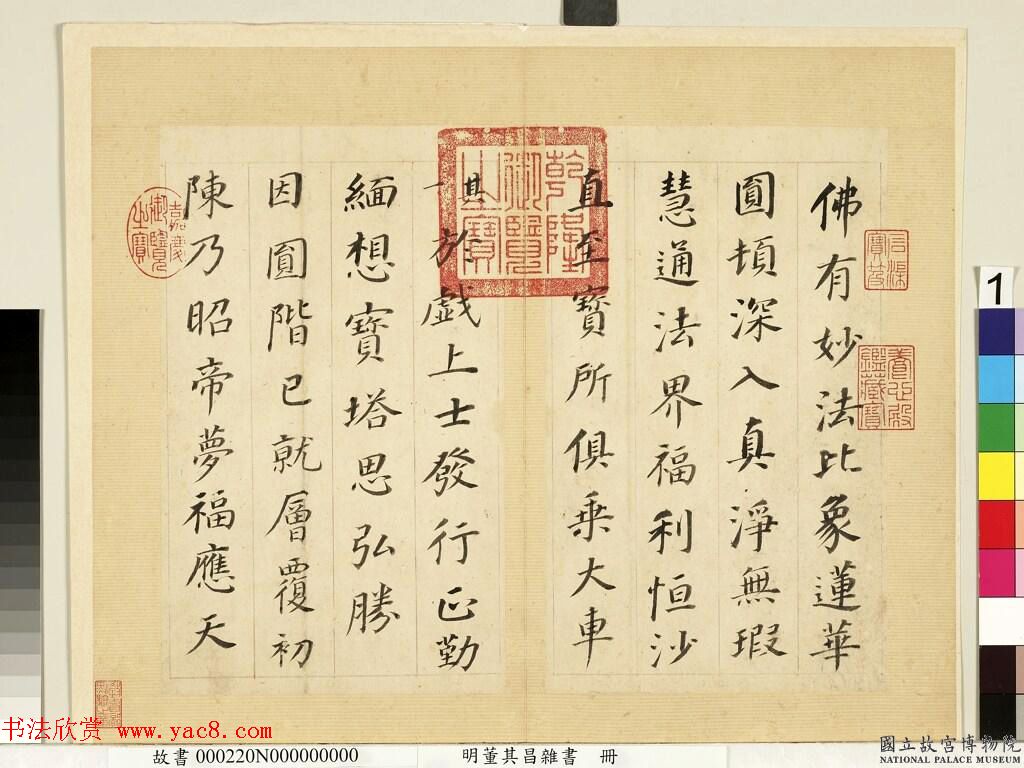 佛有妙法比象蓮華
圓頓深入真淨無瑕
慧通法界福利恒沙
直至寶所俱乗大車
其一
於戲上士發行正勤
緬想寶塔思弘勝
因圓階已就層覆初
陳乃昭帝夢福應天
乾隆御覽之寶
嘉慶御覽之寶
石渠寶笈
養心殿鑑藏寶
1
书法欣赏 www.yac8.com
故書 000220N000000000 明董其昌雜書 冊
國立故宮博物院
NATIONAL PALACE MUSEUM